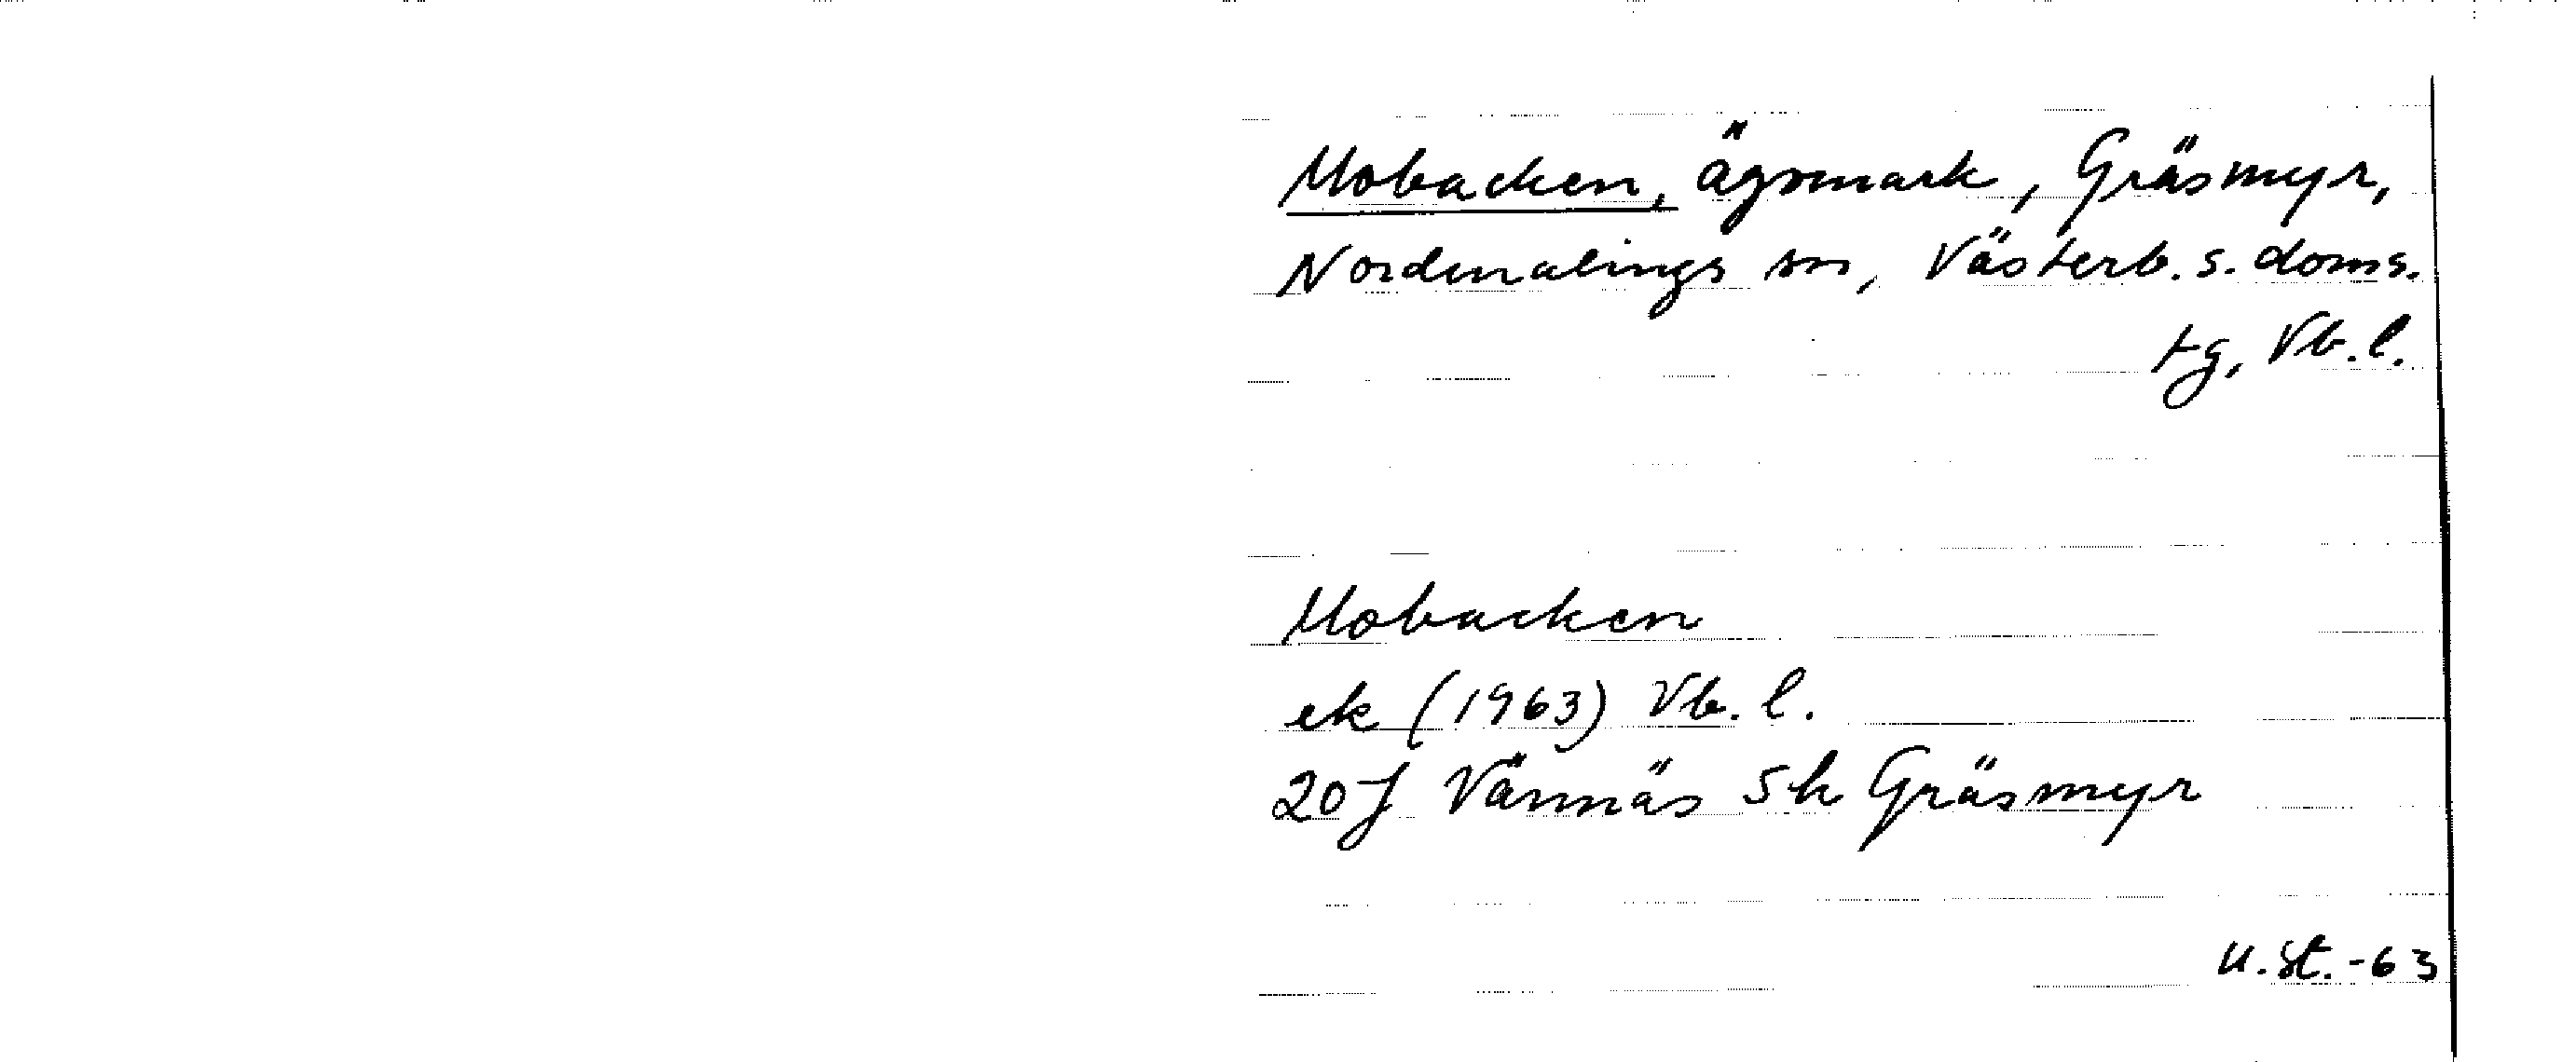 Mobacken, ägomark, Gräsmyr,
Nordmalings sn, Västerb. s. doms.
tg, Vb.l.
Mobacken
ek (1963) Vb. l.
20J Vännäs 5h Gräsmyr
U.St.-63